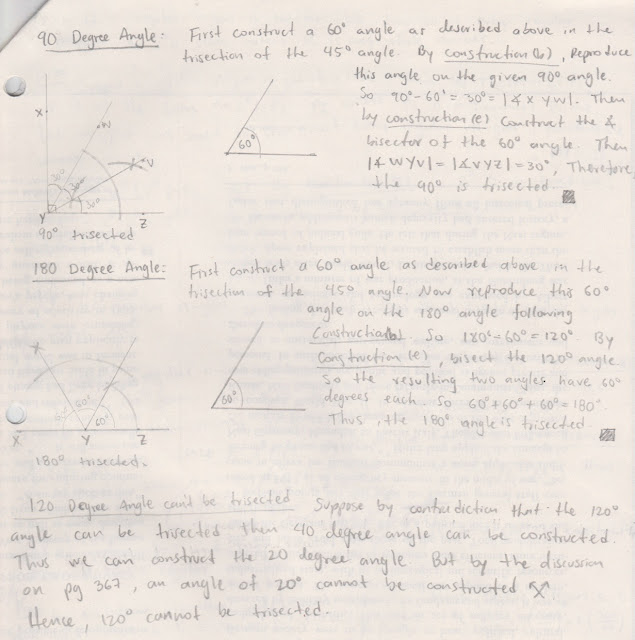 90 Degree Angle: First construct a 60° angle as described above in the
trisection of the 45° angle. By construction (b), Reproduce
this angle on the given 90° angle.
So 90°-60° = 30° = |∡ X Y W|. Then
by construction (e) Construct the ∡
bisector of the 60° angle. Then
|∡ WYV| = |∡ VYZ| = 30°, Therefore,
the 90° is trisected.
X
W
V
30°
30°
30°
Y
Z
90° trisected
60°
180 Degree Angle: First construct a 60° angle as described above in the
trisection of the 45° angle. Now reproduce this 60°
angle on the 180° angle following
Construction (b). So 180°-60° = 120°. By
Construction (e), bisect the 120° angle.
So the resulting two angles have 60°
degrees each. So 60°+60°+60° = 180°.
Thus, the 180° angle is trisected.
60°
60°
X
Y
Z
180° trisected.
60°
120 Degree Angle can't be trisected Suppose by contradiction that the 120°
angle can be trisected then 40 degree angle can be constructed.
Thus we can construct the 20 degree angle But by the discussion
on pg 367, an angle of 20° cannot be constructed
Hence, 120° cannot be trisected.